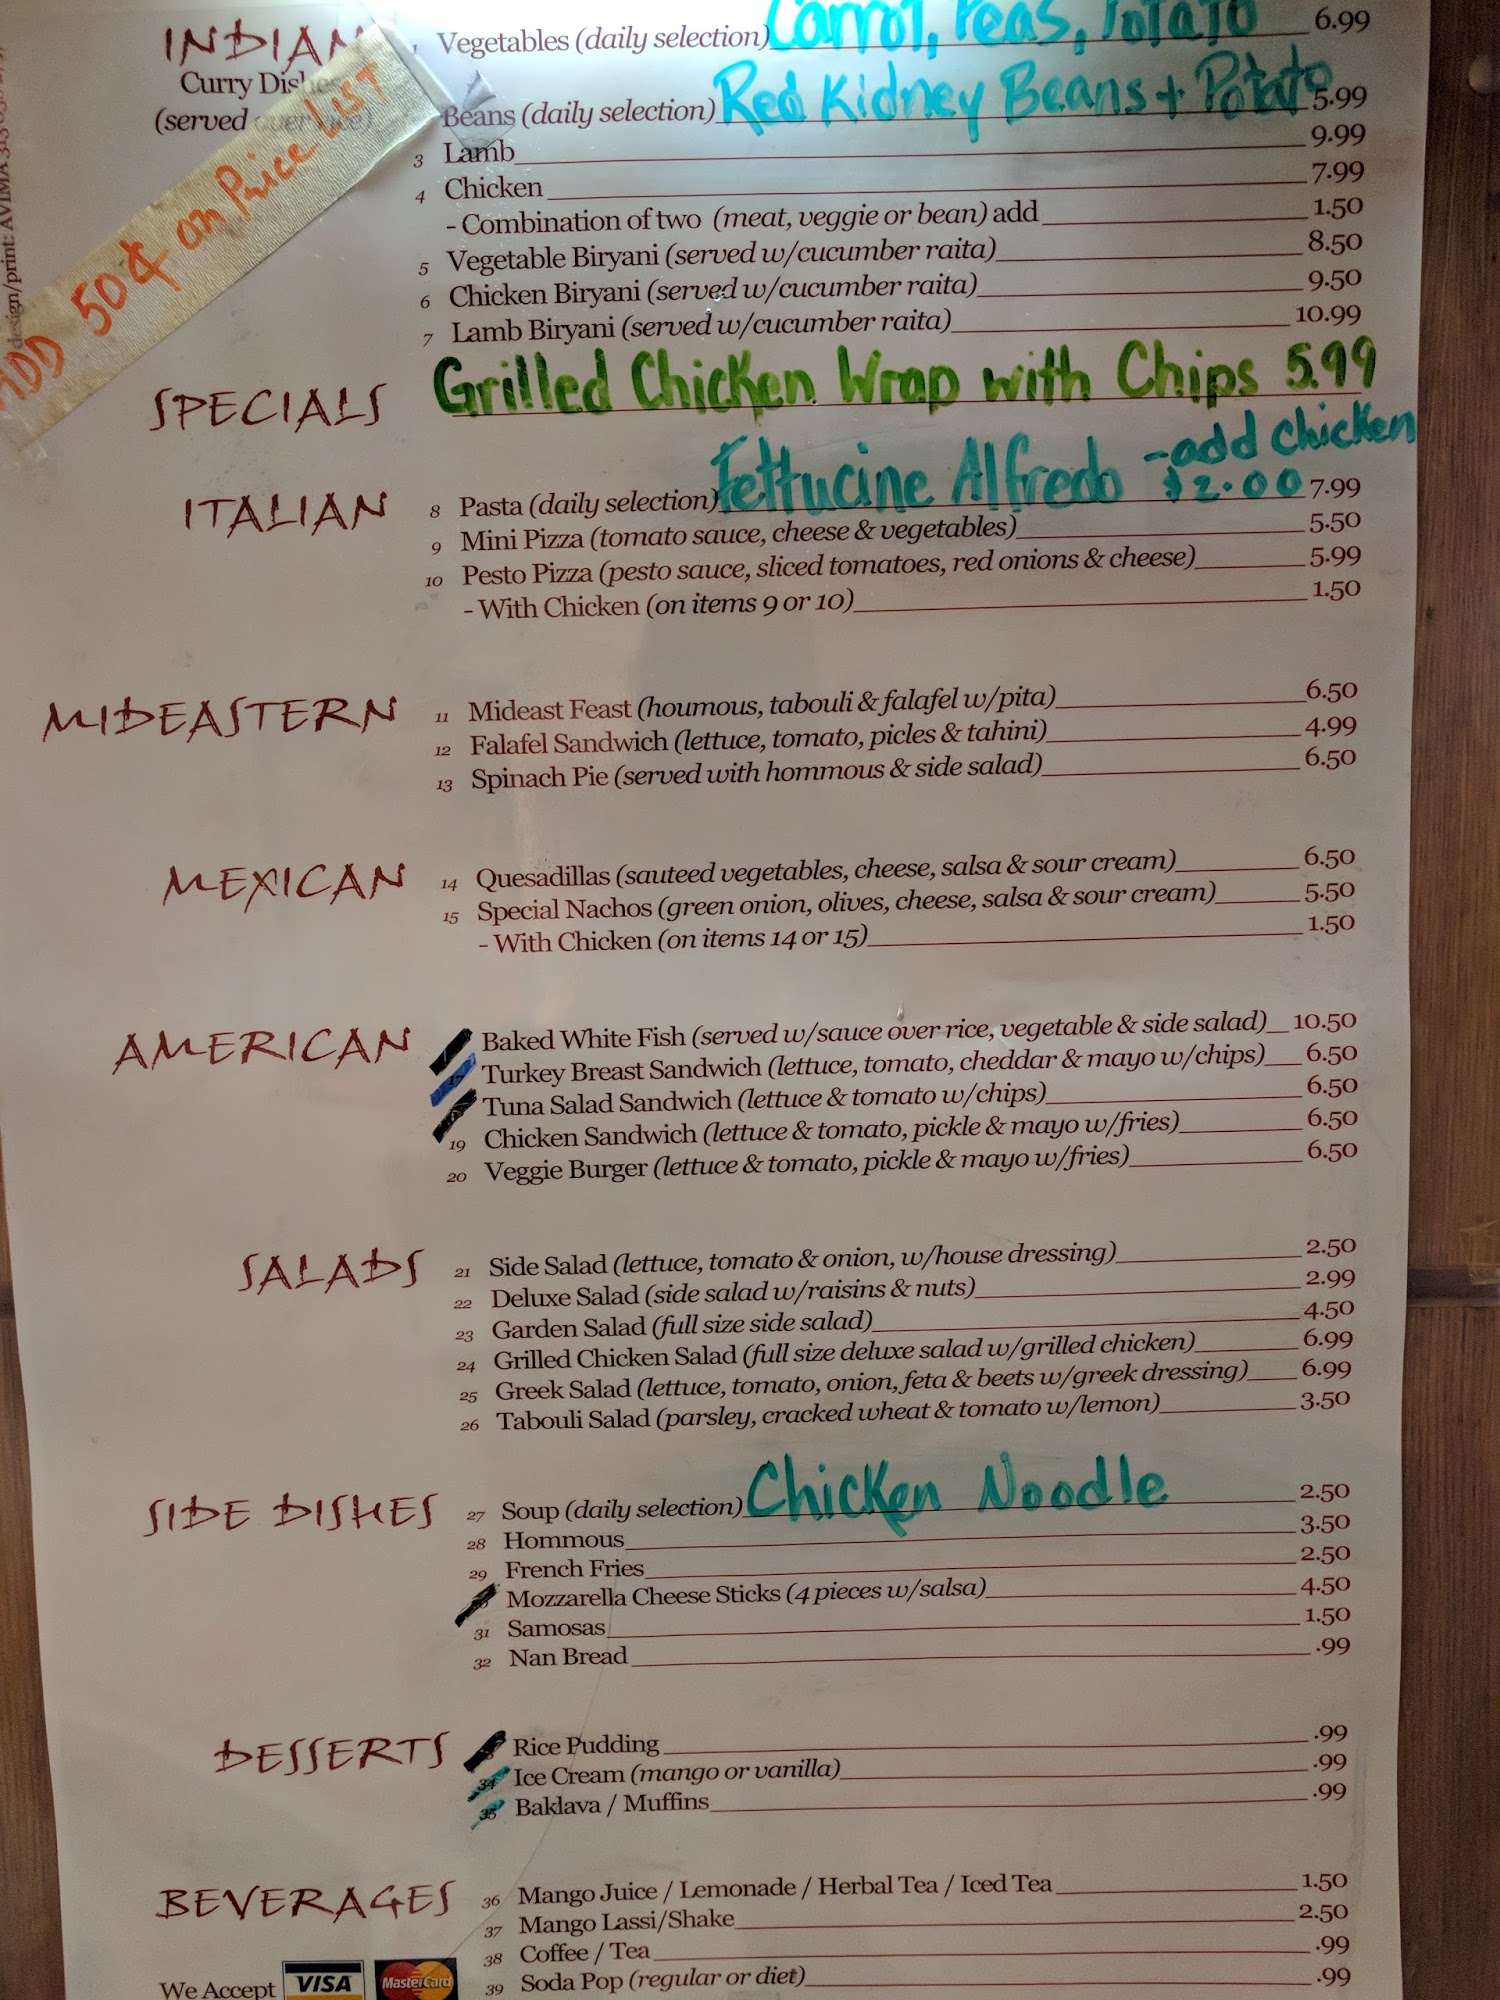 INDIAN
Curry Dishes
(served over rice)
ADD 50¢ on Price List
design/print: AVIMA
Vegetables (daily selection) Carrot, Peas, Potato 6.99
Beans (daily selection) Red Kidney Beans + Potato 5.99
3 Lamb 9.99
4 Chicken 7.99
- Combination of two (meat, veggie or bean) add 1.50
5 Vegetable Biryani (served w/cucumber raita) 8.50
6 Chicken Biryani (served w/cucumber raita) 9.50
7 Lamb Biryani (served w/cucumber raita) 10.99
SPECIALS Grilled Chicken Wrap with Chips 5.99
ITALIAN
8 Pasta (daily selection) Fettucine Alfredo - add chicken $2.00 7.99
9 Mini Pizza (tomato sauce, cheese & vegetables) 5.50
10 Pesto Pizza (pesto sauce, sliced tomatoes, red onions & cheese) 5.99
- With Chicken (on items 9 or 10) 1.50
MIDEASTERN
11 Mideast Feast (houmous, tabouli & falafel w/pita) 6.50
12 Falafel Sandwich (lettuce, tomato, picles & tahini) 4.99
13 Spinach Pie (served with hommous & side salad) 6.50
MEXICAN
14 Quesadillas (sauteed vegetables, cheese, salsa & sour cream) 6.50
15 Special Nachos (green onion, olives, cheese, salsa & sour cream) 5.50
- With Chicken (on items 14 or 15) 1.50
AMERICAN
Baked White Fish (served w/sauce over rice, vegetable & side salad) 10.50
Turkey Breast Sandwich (lettuce, tomato, cheddar & mayo w/chips) 6.50
Tuna Salad Sandwich (lettuce & tomato w/chips) 6.50
19 Chicken Sandwich (lettuce & tomato, pickle & mayo w/fries) 6.50
20 Veggie Burger (lettuce & tomato, pickle & mayo w/fries) 6.50
SALADS
21 Side Salad (lettuce, tomato & onion, w/house dressing) 2.50
22 Deluxe Salad (side salad w/raisins & nuts) 2.99
23 Garden Salad (full size side salad) 4.50
24 Grilled Chicken Salad (full size deluxe salad w/grilled chicken) 6.99
25 Greek Salad (lettuce, tomato, onion, feta & beets w/greek dressing) 6.99
26 Tabouli Salad (parsley, cracked wheat & tomato w/lemon) 3.50
SIDE DISHES
27 Soup (daily selection) Chicken Noodle 2.50
28 Hommous 3.50
29 French Fries 2.50
Mozzarella Cheese Sticks (4 pieces w/salsa) 4.50
31 Samosas 1.50
32 Nan Bread .99
DESSERTS
Rice Pudding .99
34 Ice Cream (mango or vanilla) .99
35 Baklava / Muffins .99
BEVERAGES
36 Mango Juice / Lemonade / Herbal Tea / Iced Tea 1.50
37 Mango Lassi/Shake 2.50
38 Coffee / Tea .99
39 Soda Pop (regular or diet) .99
We Accept VISA MasterCard